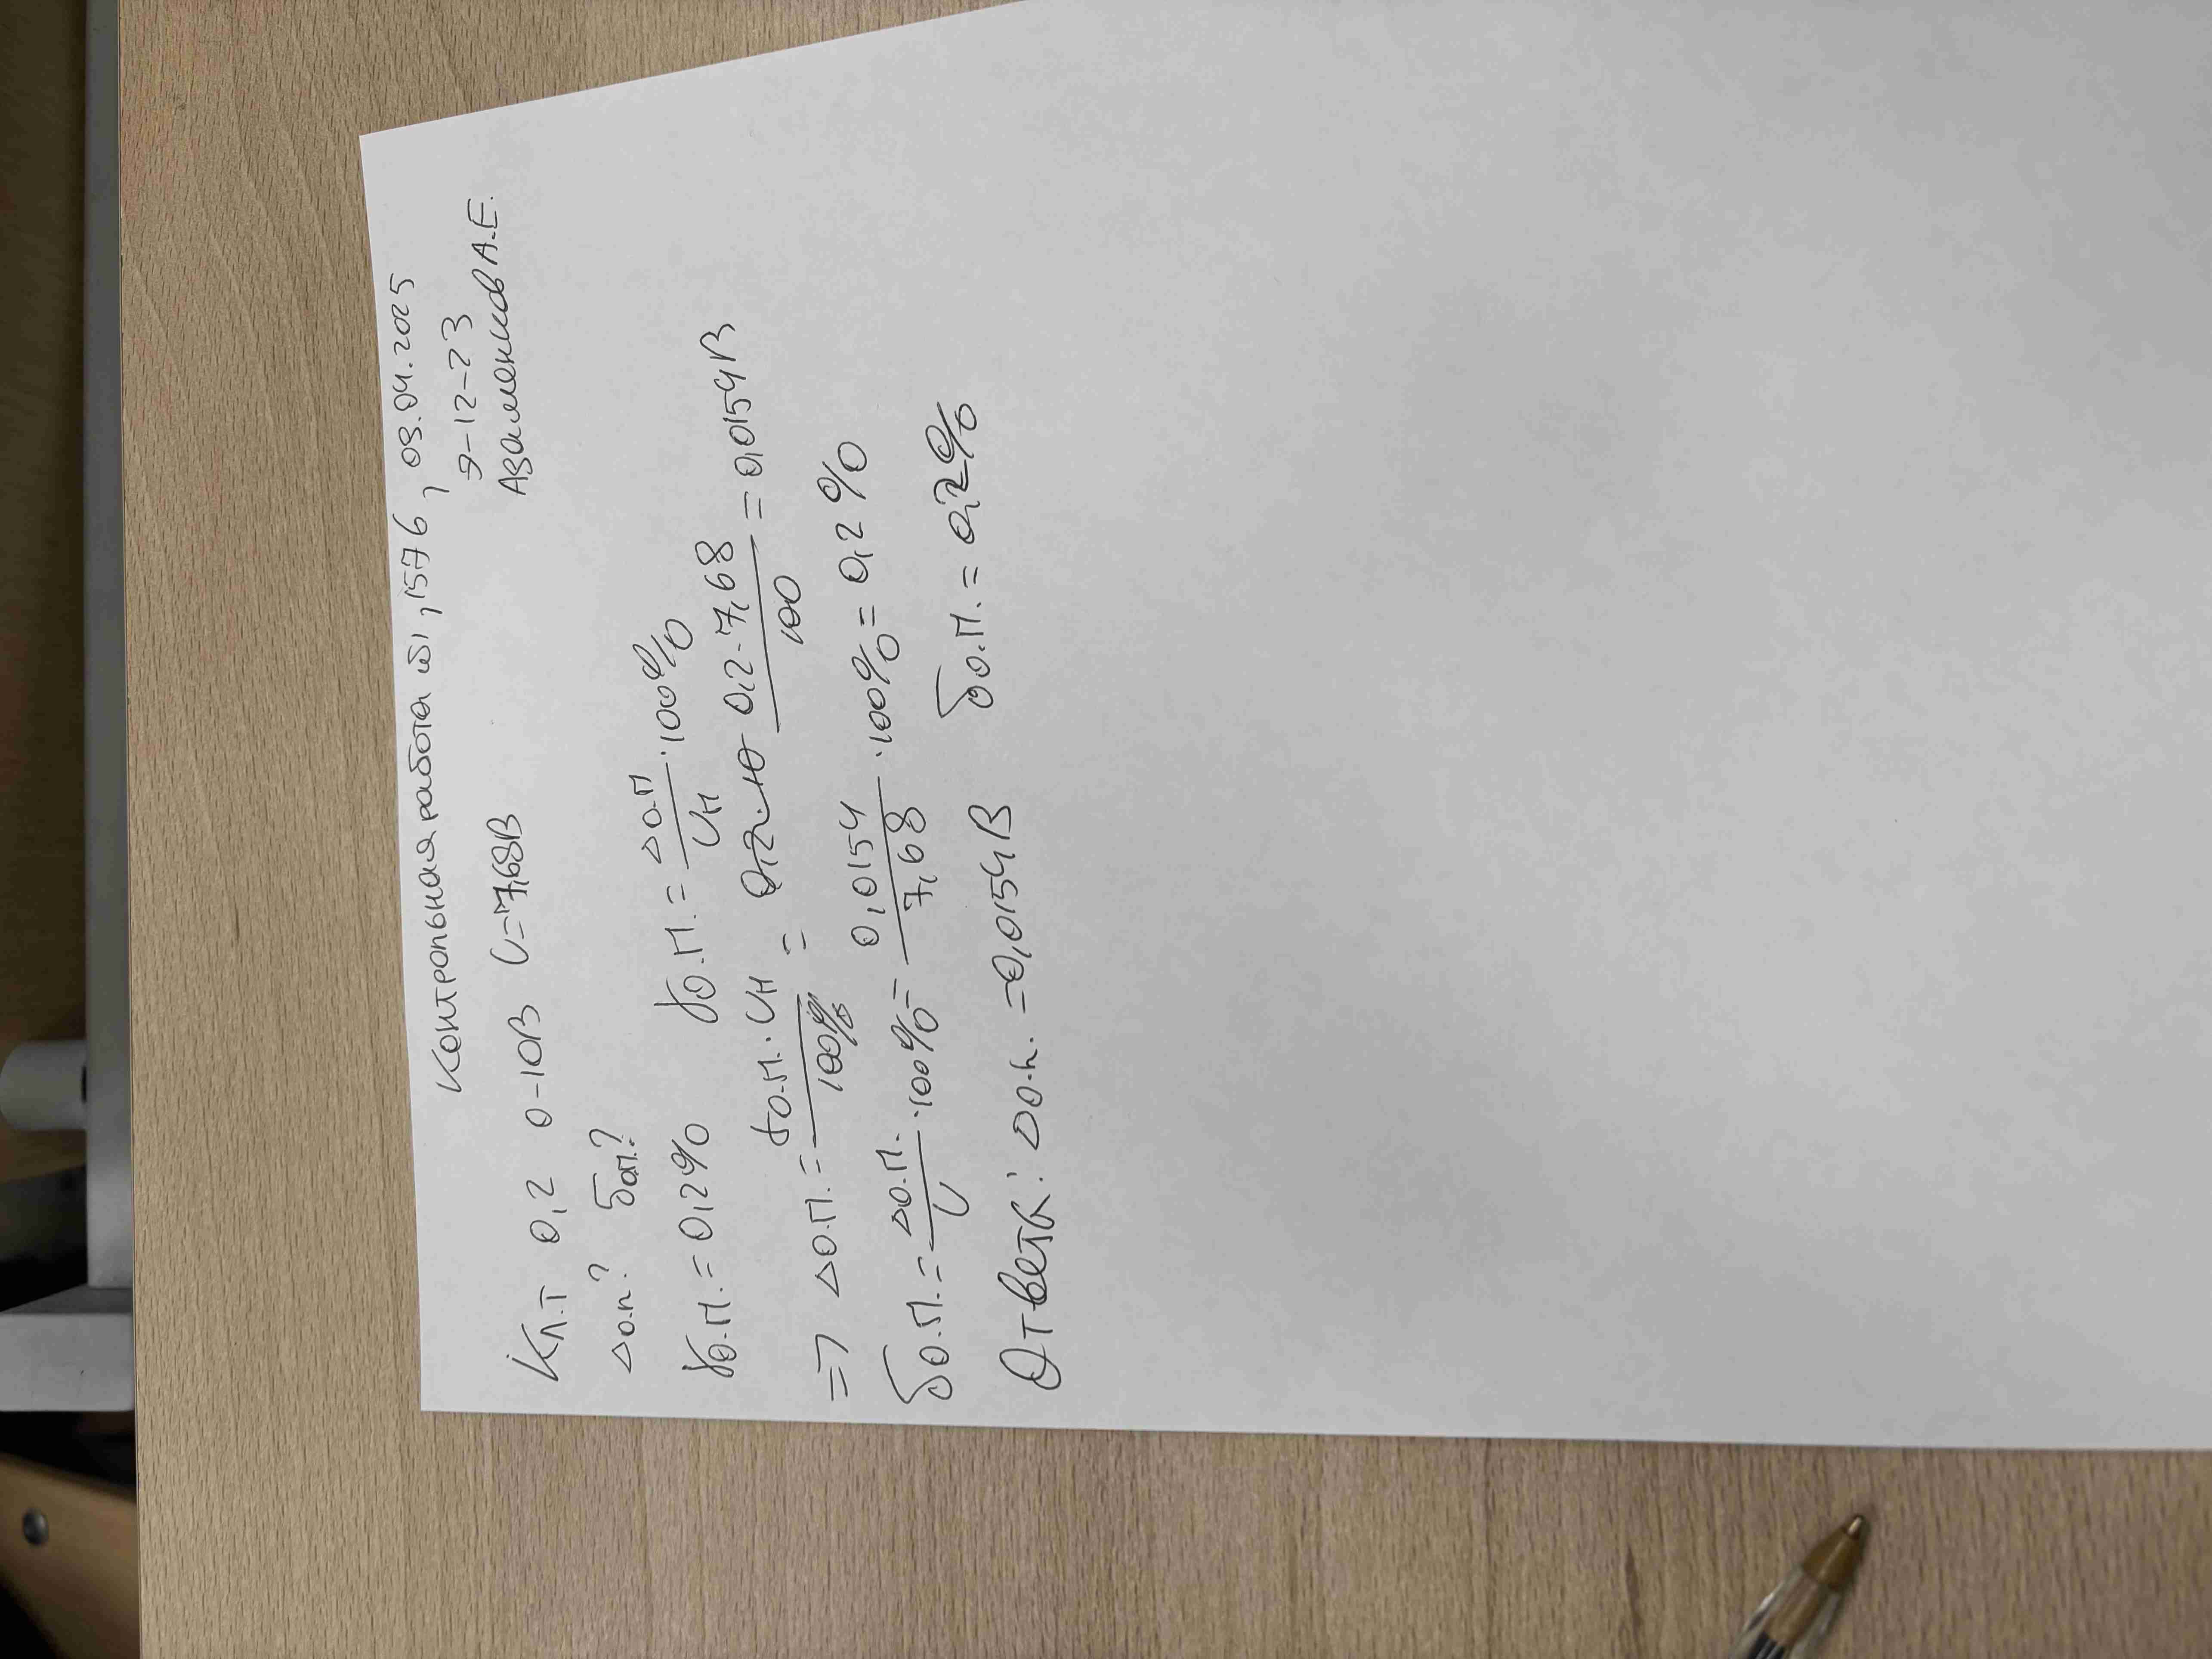 Контрольная работа №1, 1576, 03.04.2025
Э-12-23
Азаменков А.Е.
Кл.т 0,2 0-10В U=7,68В
Δо.п.? δо.п.?
γо.п.=0,2% γо.п.=Δо.п/Uн·100%
=> Δо.п.=γо.п.·Uн/100%= 0,2·10 0,2·7,68/100=0,0154В
δо.п.=Δо.п./U·100%=0,0154/7,68·100%=0,2%
Ответ: Δо.п.=0,0154В δо.п.=0,2%